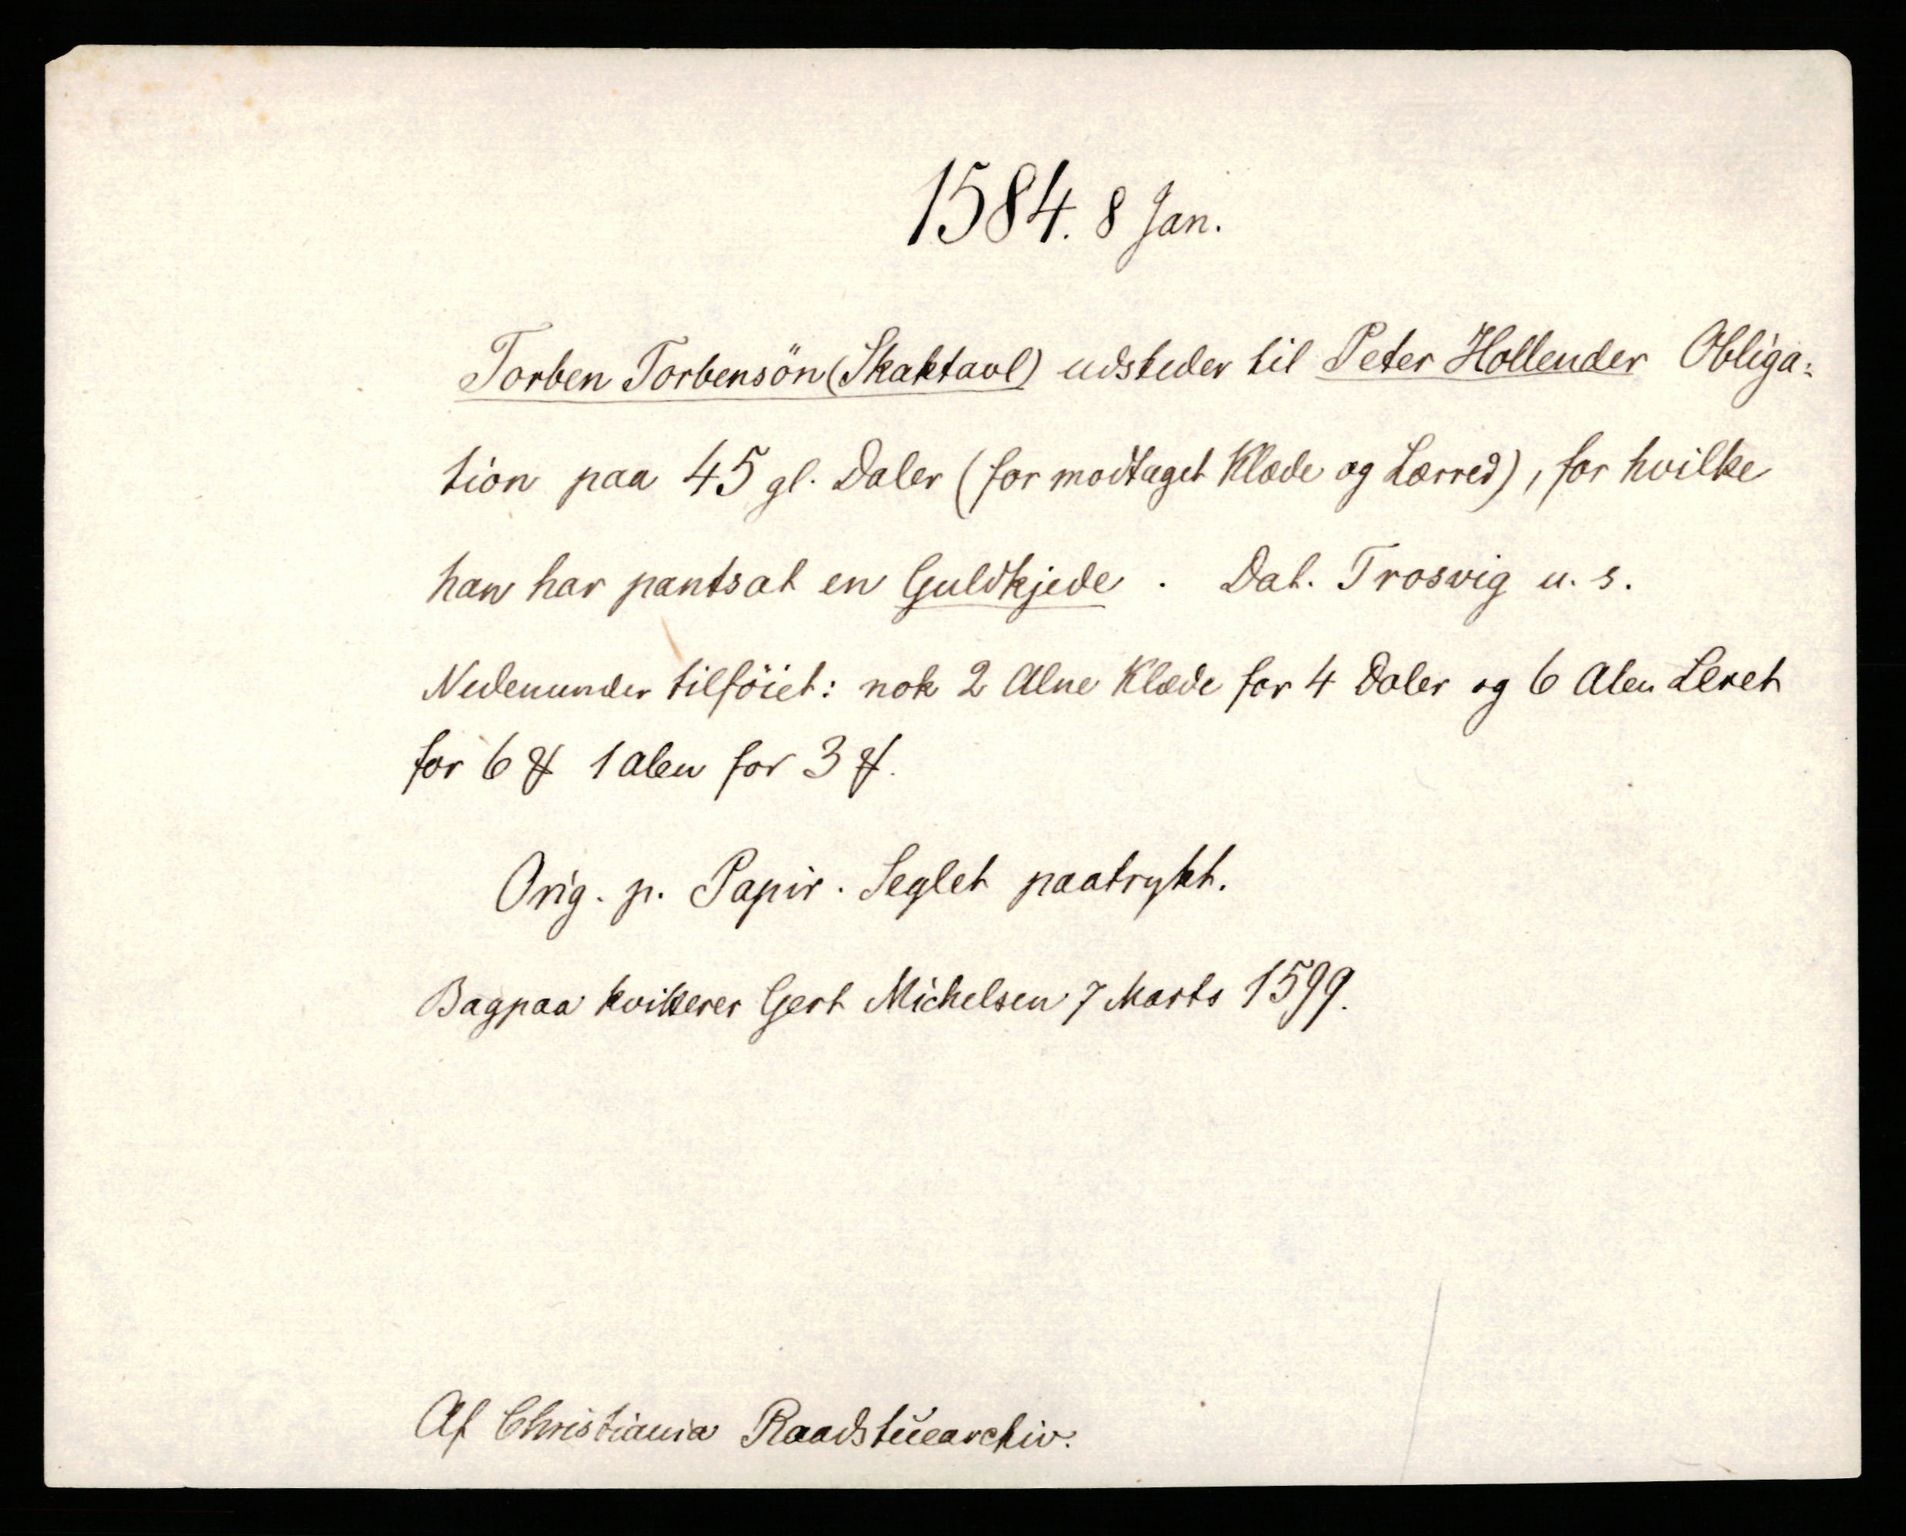 1584. 8 Jan.
Torben Torbensön (Skaktavl) udsteder til Peter Hollender Obliga-
tion paa 45 gl. Daler (for modtaget Klæde og Lærred), for hvilke
han har pantsat en Guldkjede. Dat. Trosvig u. s.
Nedenunder tilföiet: nok 2 Alne Klæde for 4 Daler og 6 Alen Leret
for 6 ꝸ 1 alen for 3 ꝸ.
Orig. p. Papir. Seglet paatrykt.
Bagpaa kvitterer Gert Michelsen 7 Marts 1599.
Af Christiania Raadstŭearchiv.